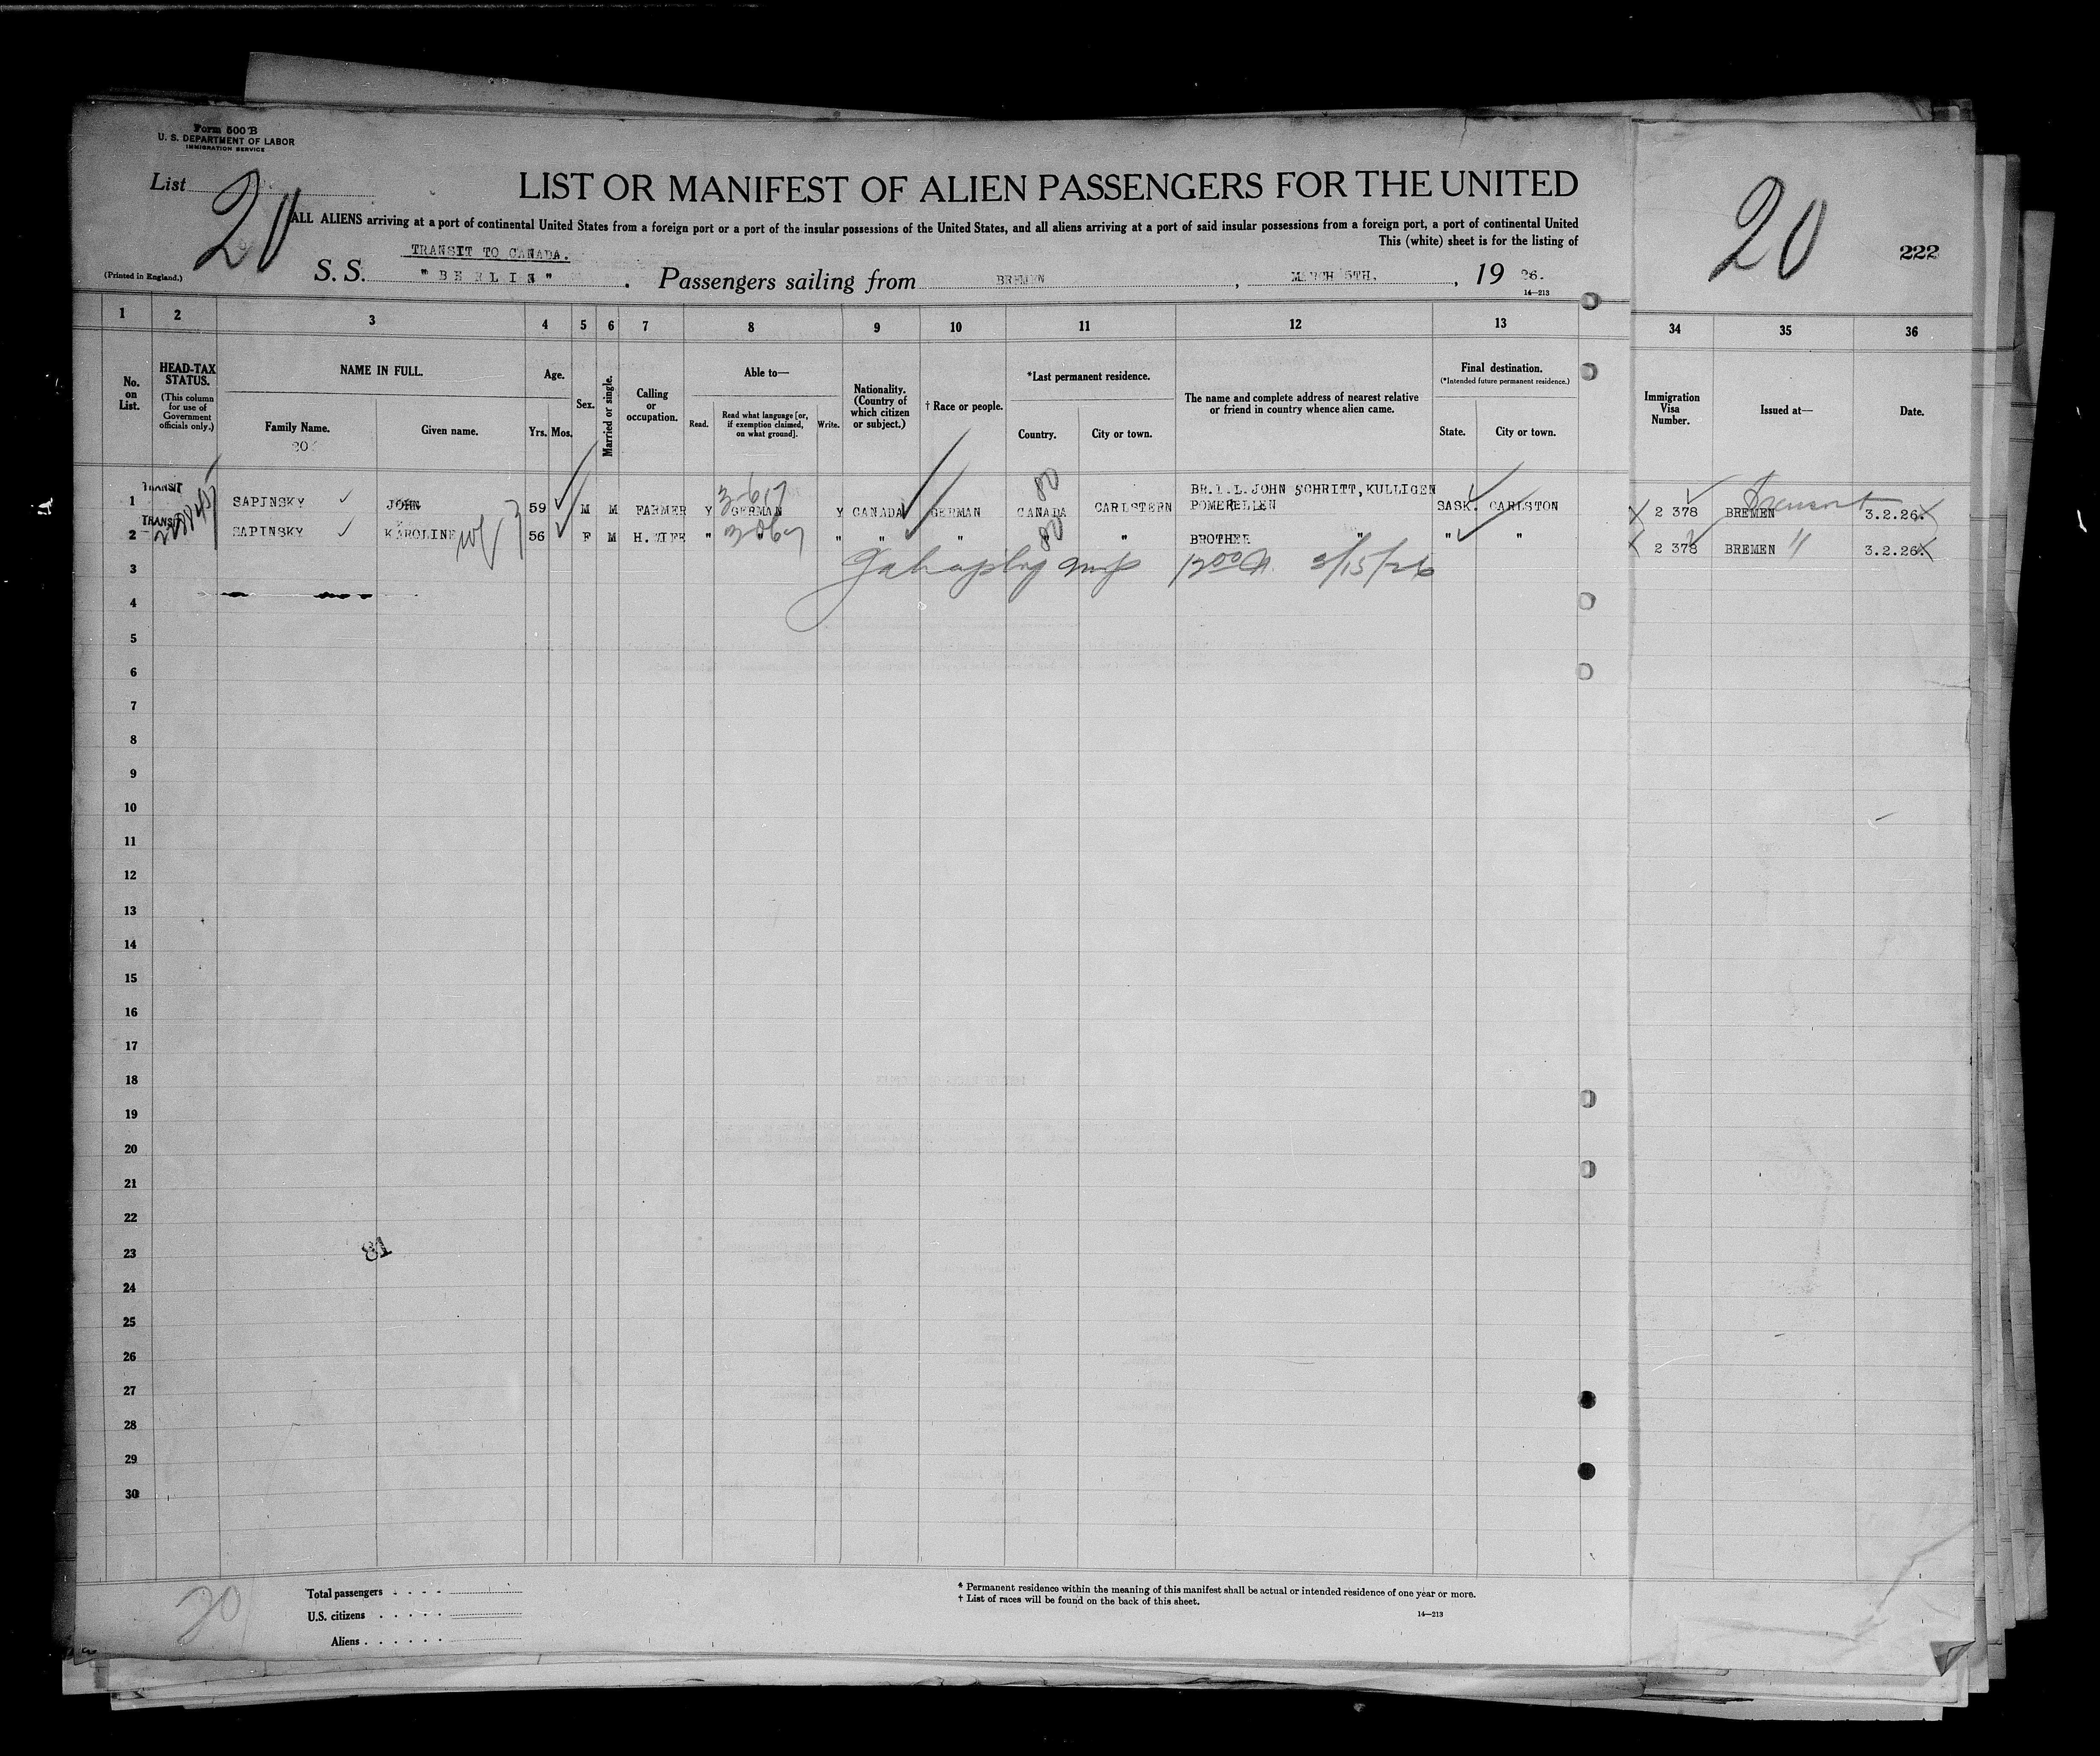 Form 500 B
U. S. DEPARTMENT OF LABOR
IMMIGRATION SERVICE
List
20
LIST OR MANIFEST OF ALIEN PASSENGERS FOR THE UNITED
ALL ALIENS arriving at a port of continental United States from a foreign port or a port of the insular possessions of the United States, and all aliens arriving at a port of said insular possessions from a foreign port, a port of continental United
This (white) sheet is for the listing of
20
222
TRANSIT TO CANADA.
(Printed in England.)
S. S. "BERLIN" . Passengers sailing from BREMEN, MARCH 5TH., 19 26.
14—213
1 2 3 4 5 6 7 8 9 10 11 12 13 34 35 36
No. on List.
HEAD-TAX STATUS.
(This column for use of Government officials only.)
NAME IN FULL.
Family Name.
Given name.
Age.
Yrs. Mos.
Sex.
Married or single.
Calling or occupation.
Able to—
Read.
Read what language [or, if exemption claimed, on what ground].
Write.
Nationality. (Country of which citizen or subject.)
† Race or people.
*Last permanent residence.
Country.
City or town.
The name and complete address of nearest relative or friend in country whence alien came.
Final destination.
(*Intended future permanent residence.)
State.
City or town.
Immigration Visa Number.
Issued at—
Date.
TRANSIT
1 SAPINSKY JOHN 59 M M FARMER Y GERMAN Y CANADA GERMAN CANADA CARLSTERN BR.I.L.JOHN SCHRITT,KULLIGEN POMERELLEN SASK. CARLSTON 2 378 BREMEN Transit 3.2.26.
TRANSIT
2 SAPINSKY KAROLINE 56 F M H.WIFE " " " " " BROTHER " " " 2 378 BREMEN " 3.2.26.
3 3/15/26
4
5
6
7
8
9
10
11
12
13
14
15
16
17
18
19
20
21
22
23
24
25
26
27
28
29
30
81
20
Total passengers
U.S. citizens
Aliens
* Permanent residence within the meaning of this manifest shall be actual or intended residence of one year or more.
† List of races will be found on the back of this sheet.
14—213